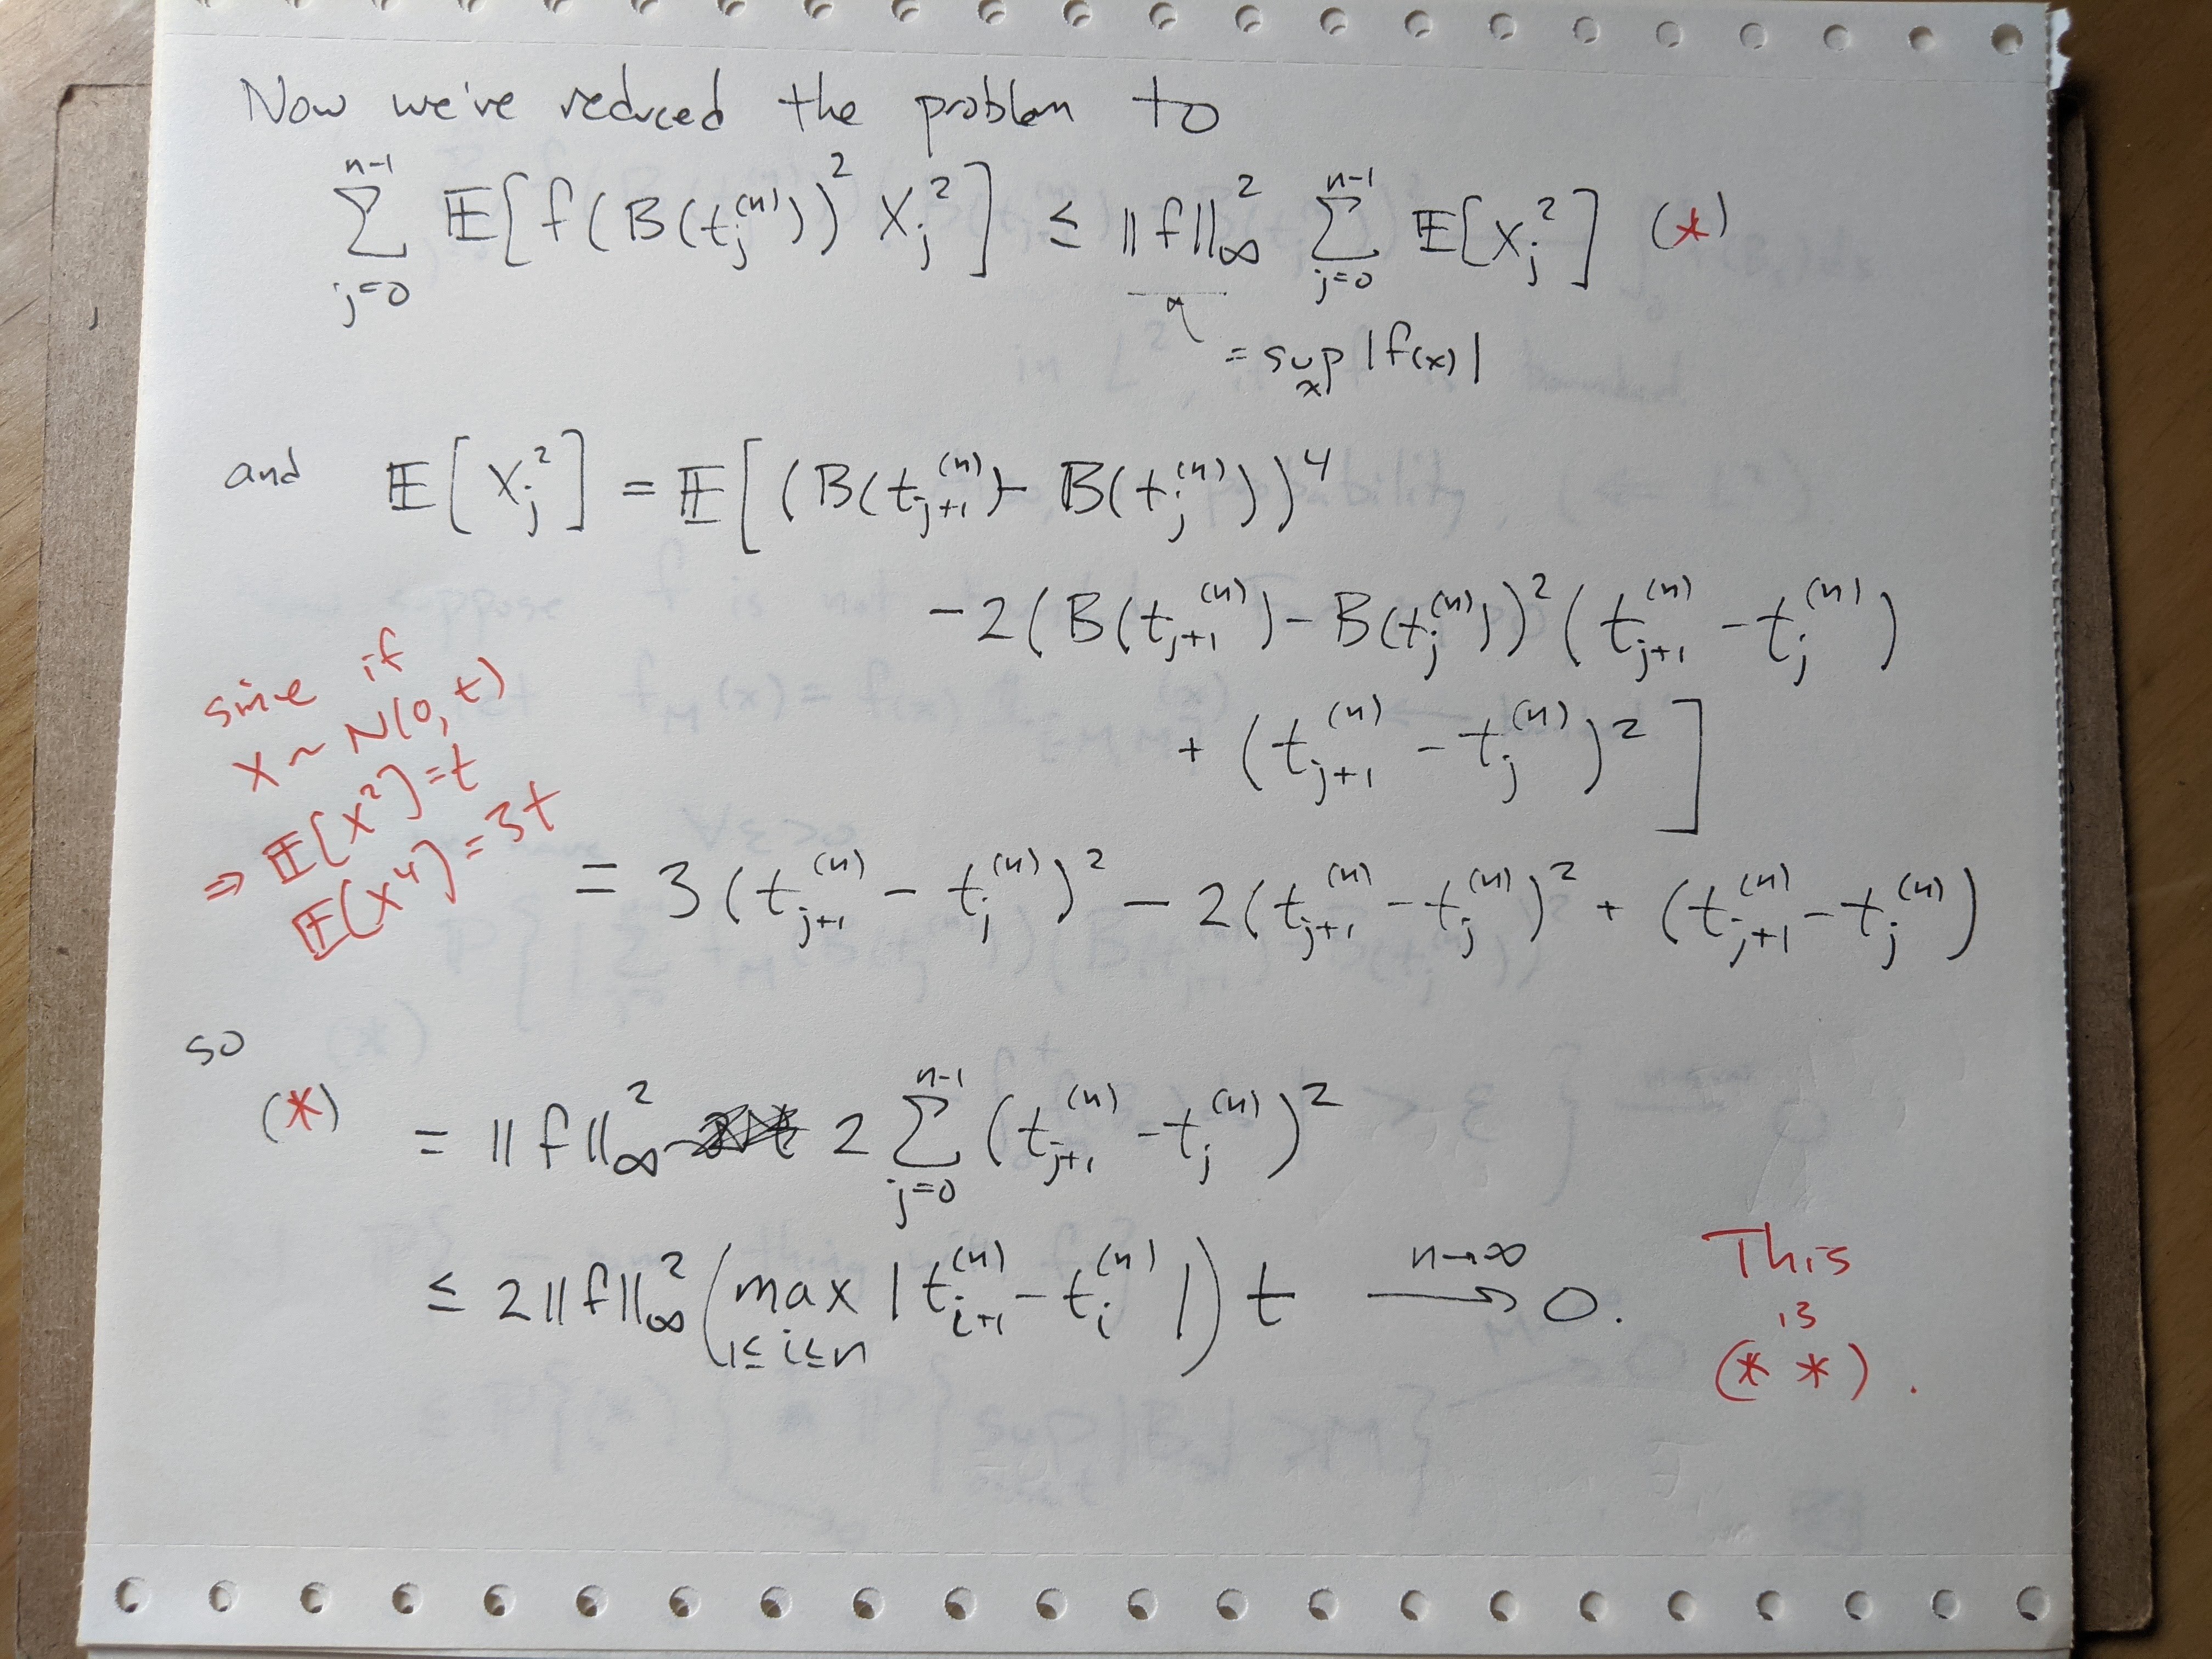 Now we've reduced the problem to
$\sum_{j=0}^{n-1} \mathbb{E}[f(B(t_j^{(n)}))^2 X_j^2] \leq \|f\|_\infty^2 \sum_{j=0}^{n-1} \mathbb{E}[X_j^2]$ (*)
$= \sup_x |f(x)|$
and $\mathbb{E}[X_j^2] = \mathbb{E}[(B(t_{j+1}^{(n)}) - B(t_j^{(n)}))^4$
$- 2(B(t_{j+1}^{(n)}) - B(t_j^{(n)}))^2 (t_{j+1}^{(n)} - t_j^{(n)})$
$+ (t_{j+1}^{(n)} - t_j^{(n)})^2]$
since if
$X \sim N(0,t)$
$\Rightarrow \mathbb{E}[X^2] = t$
$\mathbb{E}[X^4] = 3t$
$= 3(t_{j+1}^{(n)} - t_j^{(n)})^2 - 2(t_{j+1}^{(n)} - t_j^{(n)})^2 + (t_{j+1}^{(n)} - t_j^{(n)})$
so
(*) $= \|f\|_\infty^2 2 \sum_{j=0}^{n-1} (t_{j+1}^{(n)} - t_j^{(n)})^2$
$\leq 2\|f\|_\infty^2 (\max_{1 \leq i \leq n} |t_{i+1}^{(n)} - t_i^{(n)}|) t \xrightarrow{n \to \infty} 0.$
This
is
(* *).